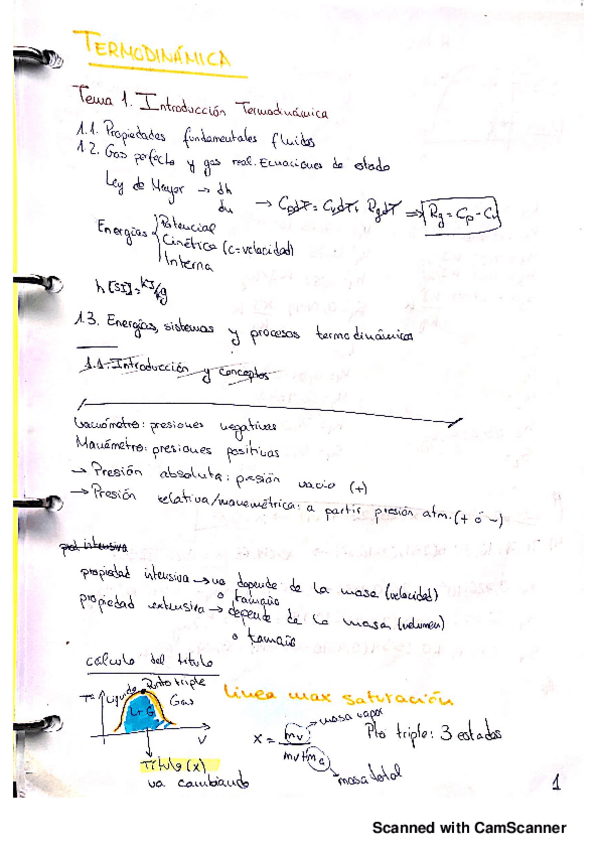 TERMODINÁMICA
Tema 1. Introducción Termodinámica
1.1. Propiedades fundamentales fluidos
1.2. Gas perfecto y gas real. Ecuaciones de estado
Ley de Mayer → dh
du → CpdT = CvdT + RgdT ⇒ Rg = Cp - Cv
Energías Potencial
Cinética (c=velocidad)
Interna
h [SI] = kJ/kg
1.3. Energías, sistemas y procesos termodinámicos
1.1. Introducción y conceptos
Vacuómetro: presiones negativas
Manómetro: presiones positivas
→ Presión absoluta: presión vacío (+)
→ Presión relativa/manométrica: a partir presión atm. (+ ó -)
pol intensiva
propiedad intensiva → no depende de la masa (velocidad)
o tamaño
propiedad extensiva → depende de la masa (volumen)
o tamaño
cálculo del título
T Líquido Punto triple Gas
L+G
V
Título (x)
va cambiando
línea max saturación
x = mv / mv+
masa vapor
masa total
Pto triple: 3 estados
1
Scanned with CamScanner